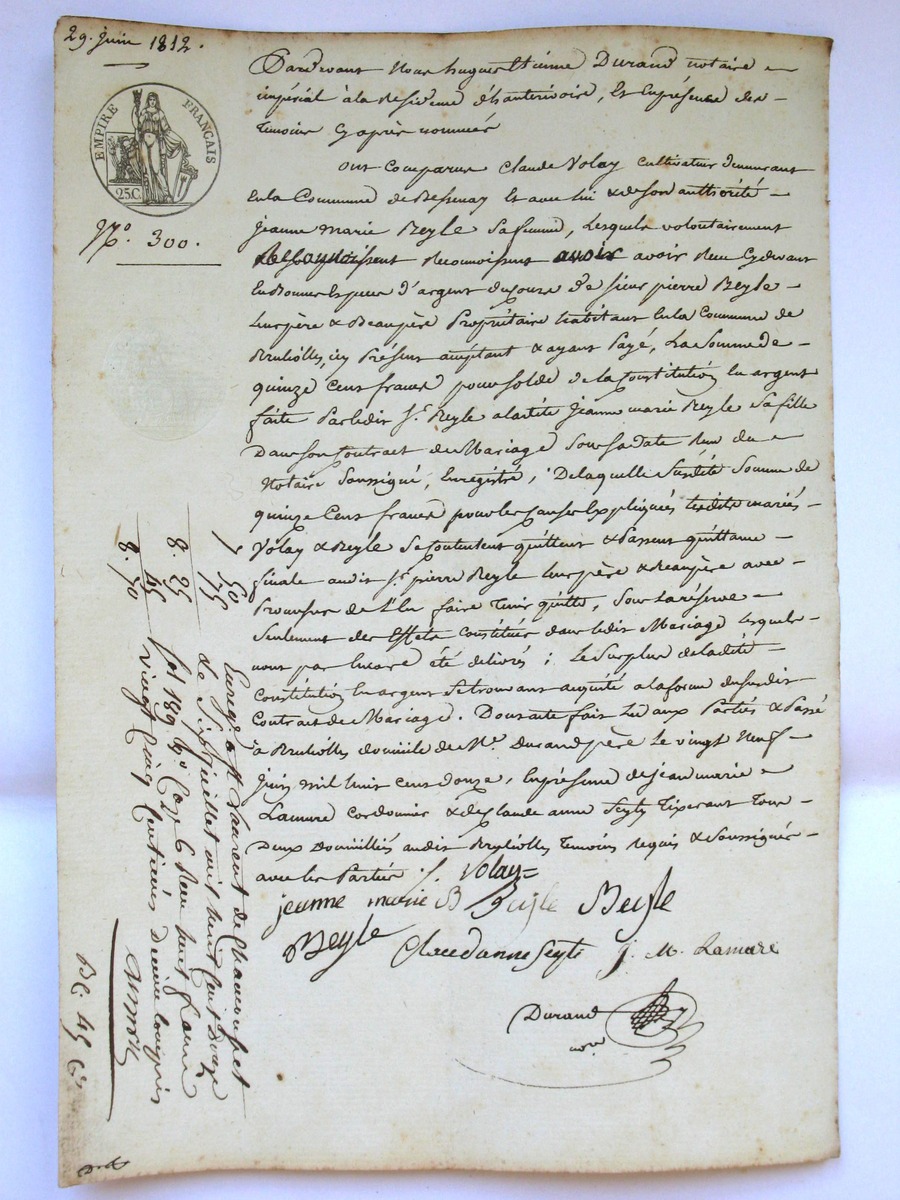 29. juin 1812.
EMPIRE FRANÇAIS
25C.
N.º 300.
Pardevant Nous hugues Etienne Durand notaire
impérial à la Residence d'hauterivoire, Et En présence des
temoins Cy après nommés
Ont Comparus Claude Volay Cultivateur demeurant
En la Commune de Bessenay Et avec lui & de son authorité
jeanne marie Beyle Sa femme, Lesquels volontairement
Reconnoissent avoir Reçu Cy devant
En Bonnes Espèces d'argent du jourd'hui de sieur pierre Beyle
Leur père & Beaupère Propriétaire habitant En la Commune de
Brulliolles, icy Présent acceptant & ayant Payé, La Somme de
quinze Cens francs pour solde de la Constitution En argent
faite Par ledit Sr. Beyle a la dite jeanne marie Beyle Sa fille
Dans son Contract de Mariage Sous Sa Date Reçu du
Notaire Soussigné, Enregistré, De laquelle Susdite Somme de
quinze Cens francs pour les Causes Expliquées lesdits mariés
Volay & Beyle Se Contentent quittent & Passent quittance
finale audit Sr. pierre Beyle Leur père & Beaupère avec
Promesse de L'En faire tenir quitte, Sous La réserve
Seulement des Effets Constitués dans ledit Mariage Lesquels
n'ont pas Encore été délivrés ; Le Surplus de la dite
Constitution En argent Se trouvant acquité a la forme du Susdit
Contrat de Mariage. Dont acte fait Lu aux Parties & Passé
à Brulliolles domicile de Me. Durand père Le vingt Neuf
Juin mil huit cens douze, En présence de jean marie
Lamure Cordonier & de Claude anne Seyte Tixerant Tous
Deux Domiciliés audit Brulliolles Temoins Requis & Soussignés
avec les Parties ./. Volay
jeanne marie B Beyle Beyle
Beyle Claudanne Seyte J. M. Lamure
Durand
nore
7. 50
75
8. 25
45
8. 70
Enregé a St. Laurent de Chamousset
Le Sept juillet mil huit Cent Douze
fol 189 Vo Ce 6 Reçu huit francs
vingt Cinq Centimes Dixieme Compris